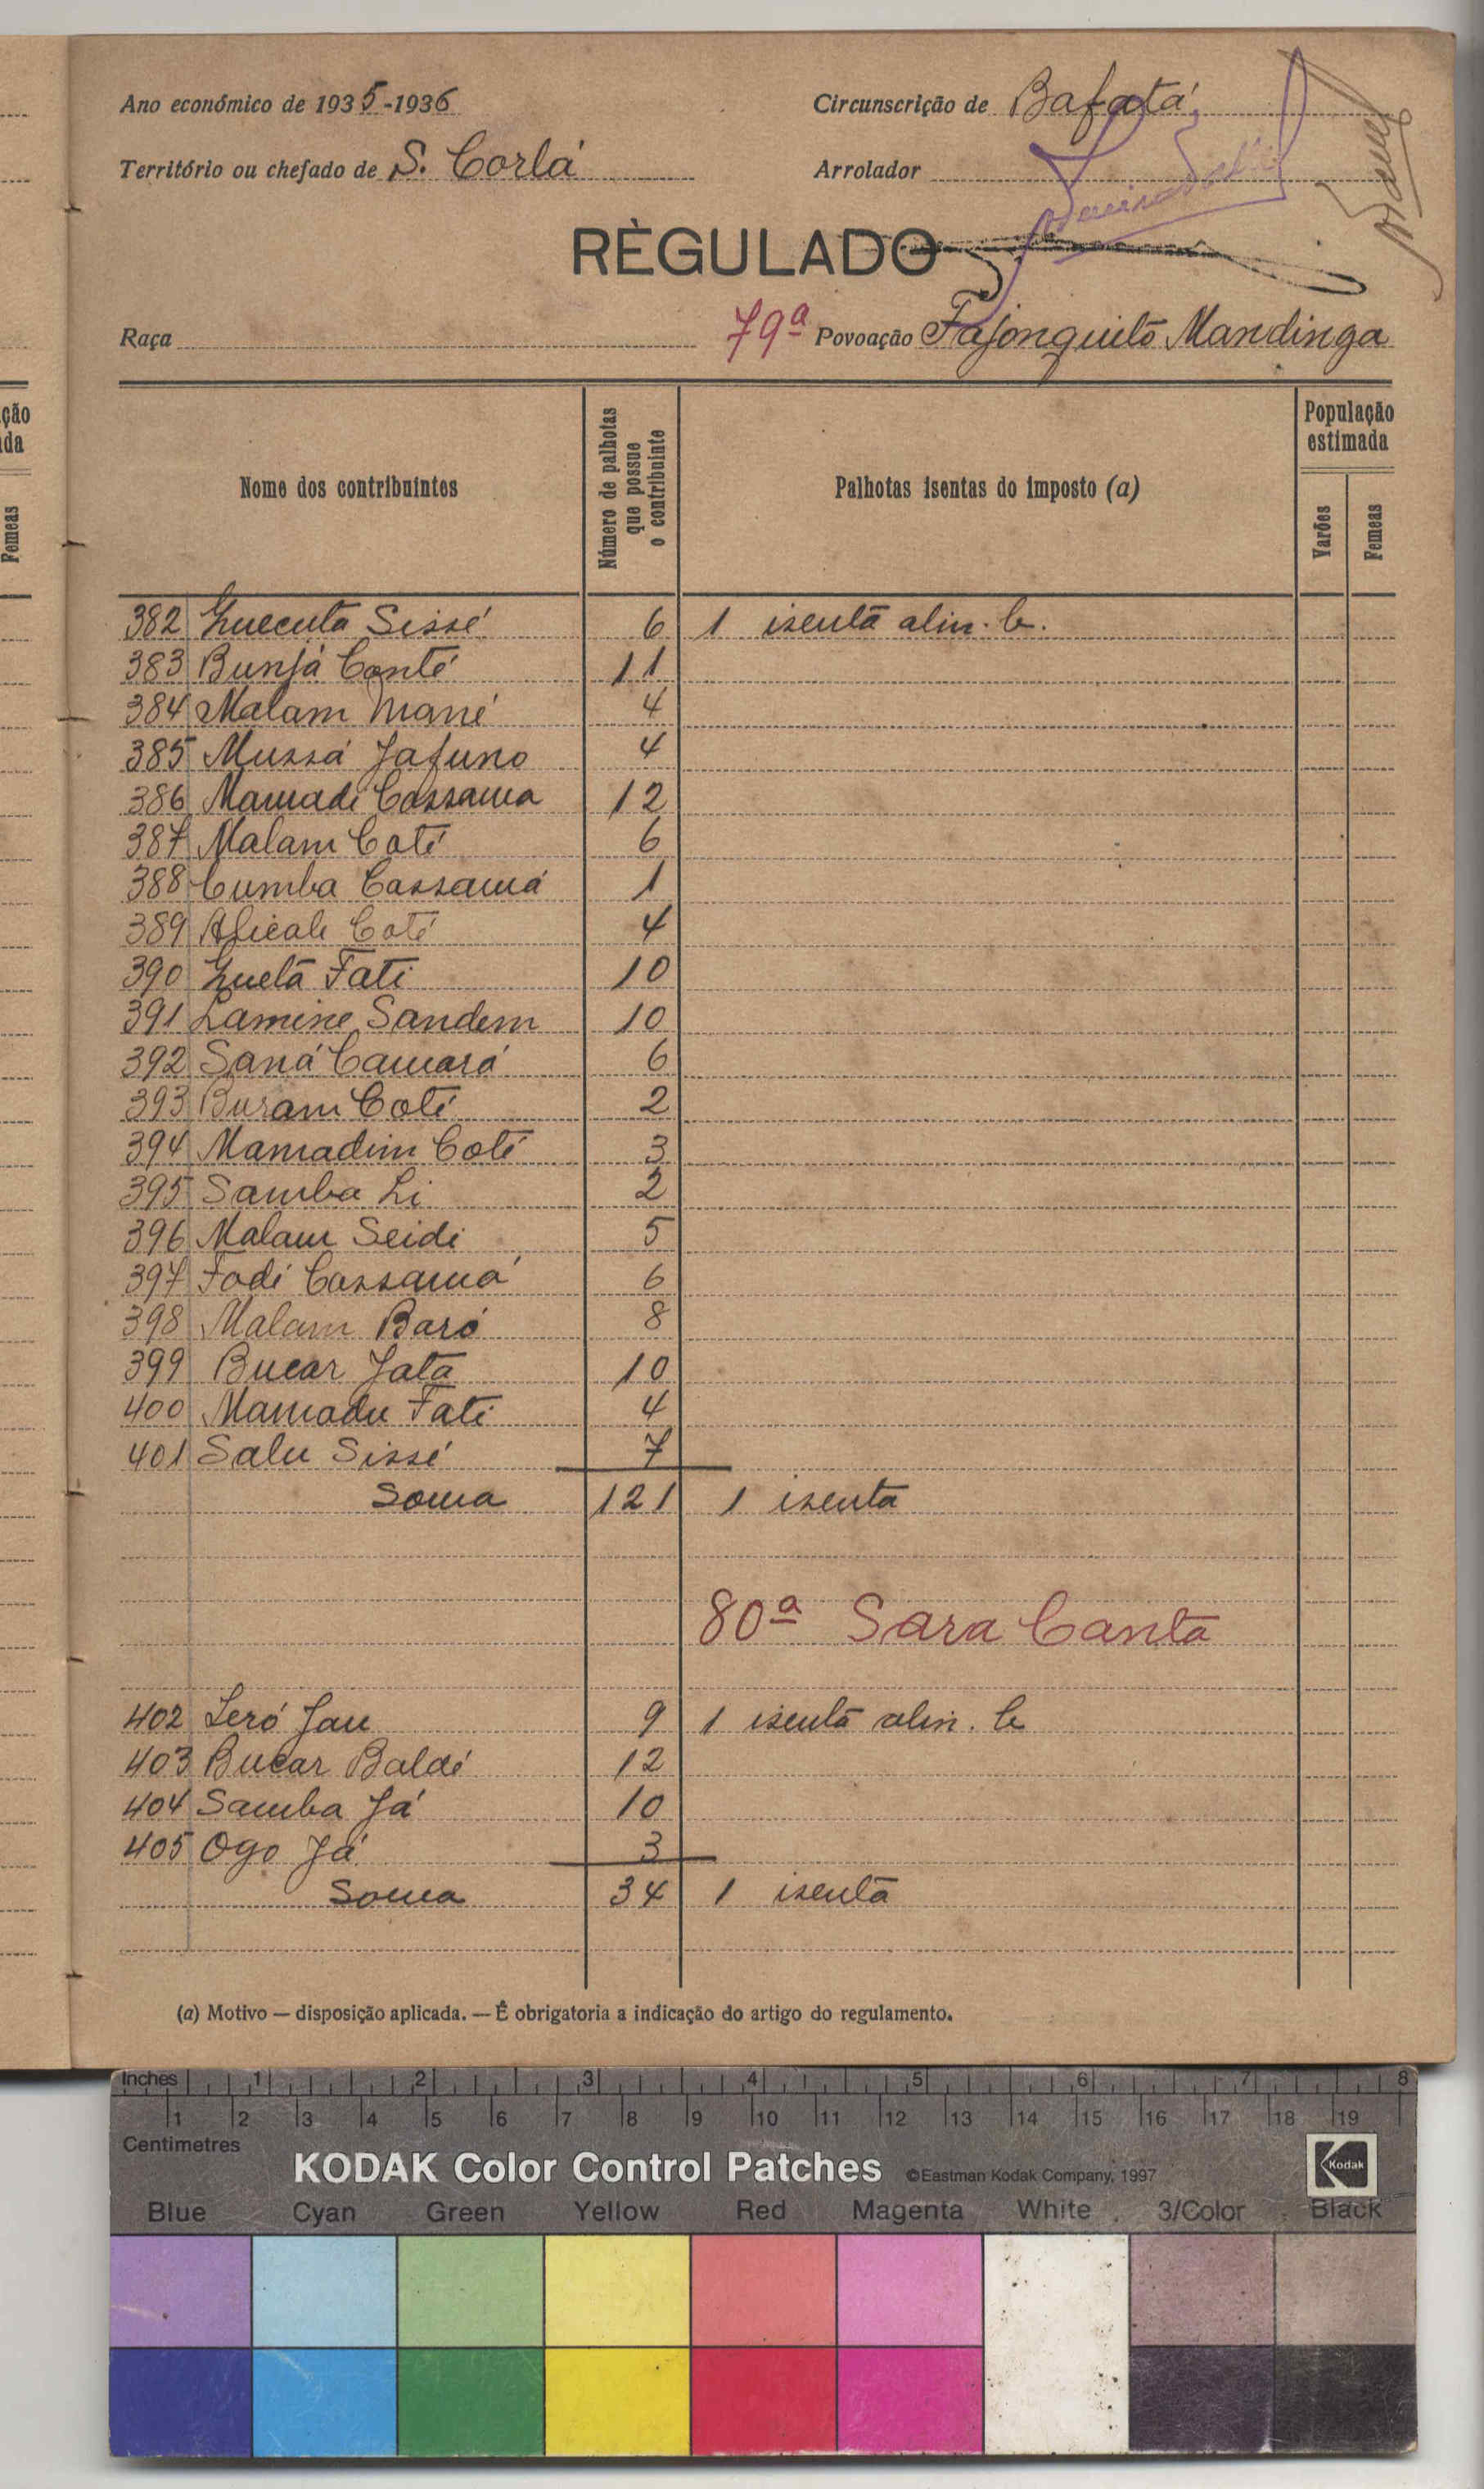 Ano económico de 1935-1936
Circunscrição de Bafatá
Território ou chefado de S. Corlá
Arrolador
RÈGULADO
Raça
79ª Povoação Fajonquitō Mandinga
Nome dos contribuintes
Número de palhotas que possue o contribuinte
Palhotas isentas do imposto (a)
População estimada
Varões
Femeas
ção
da
Femeas
382 Quecuta Sissé 6 1 isenta alin. b.
383 Bunjá Conté 11
384 Malam Mané 4
385 Mussá Jafuno 4
386 Mamadi Cassama 12
387 Malam Coté 6
388 Cumba Cassamá 1
389 Coté 4
390 Quetā Fati 10
391 Lamine Sandem 10
392 Saná Camará 6
393 Buram Coté 2
394 Mamadim Coté 3
395 Samba Li 2
396 Malam Seidi 5
397 Fodé Cassamá 6
398 Malam Baró 8
399 Bucar Jata 10
400 Mamadu Fati 4
401 Salu Sissé 7
Soma 121 1 isenta
80ª Sara Canta
402 Leró Jau 9 1 isenta alin. b
403 Bucar Baldé 12
404 Samba Já 10
405 Ogo Já 3
Soma 34 1 isenta
(a) Motivo — disposição aplicada. — É obrigatoria a indicação do artigo do regulamento.
Inches 1 2 3 4 5 6 7 8
1 2 3 4 5 6 7 8 9 10 11 12 13 14 15 16 17 18 19
Centimetres
KODAK Color Control Patches ©Eastman Kodak Company, 1997 Kodak
Blue Cyan Green Yellow Red Magenta White 3/Color Black